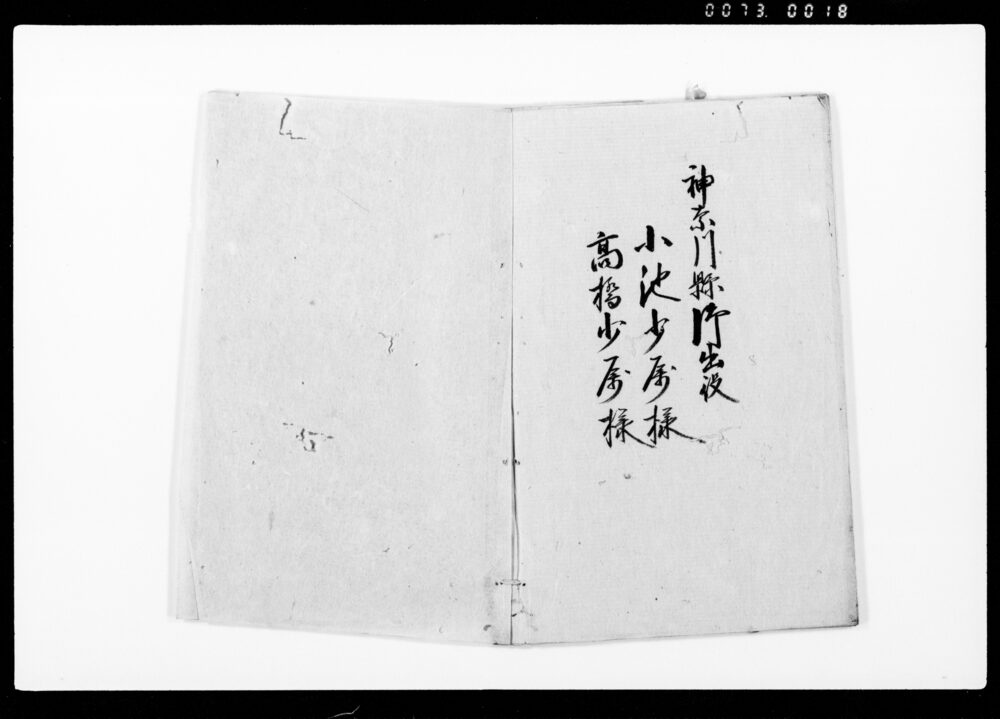 0073. 0018
神奈川縣御出役
小池少属様
高橋少属様